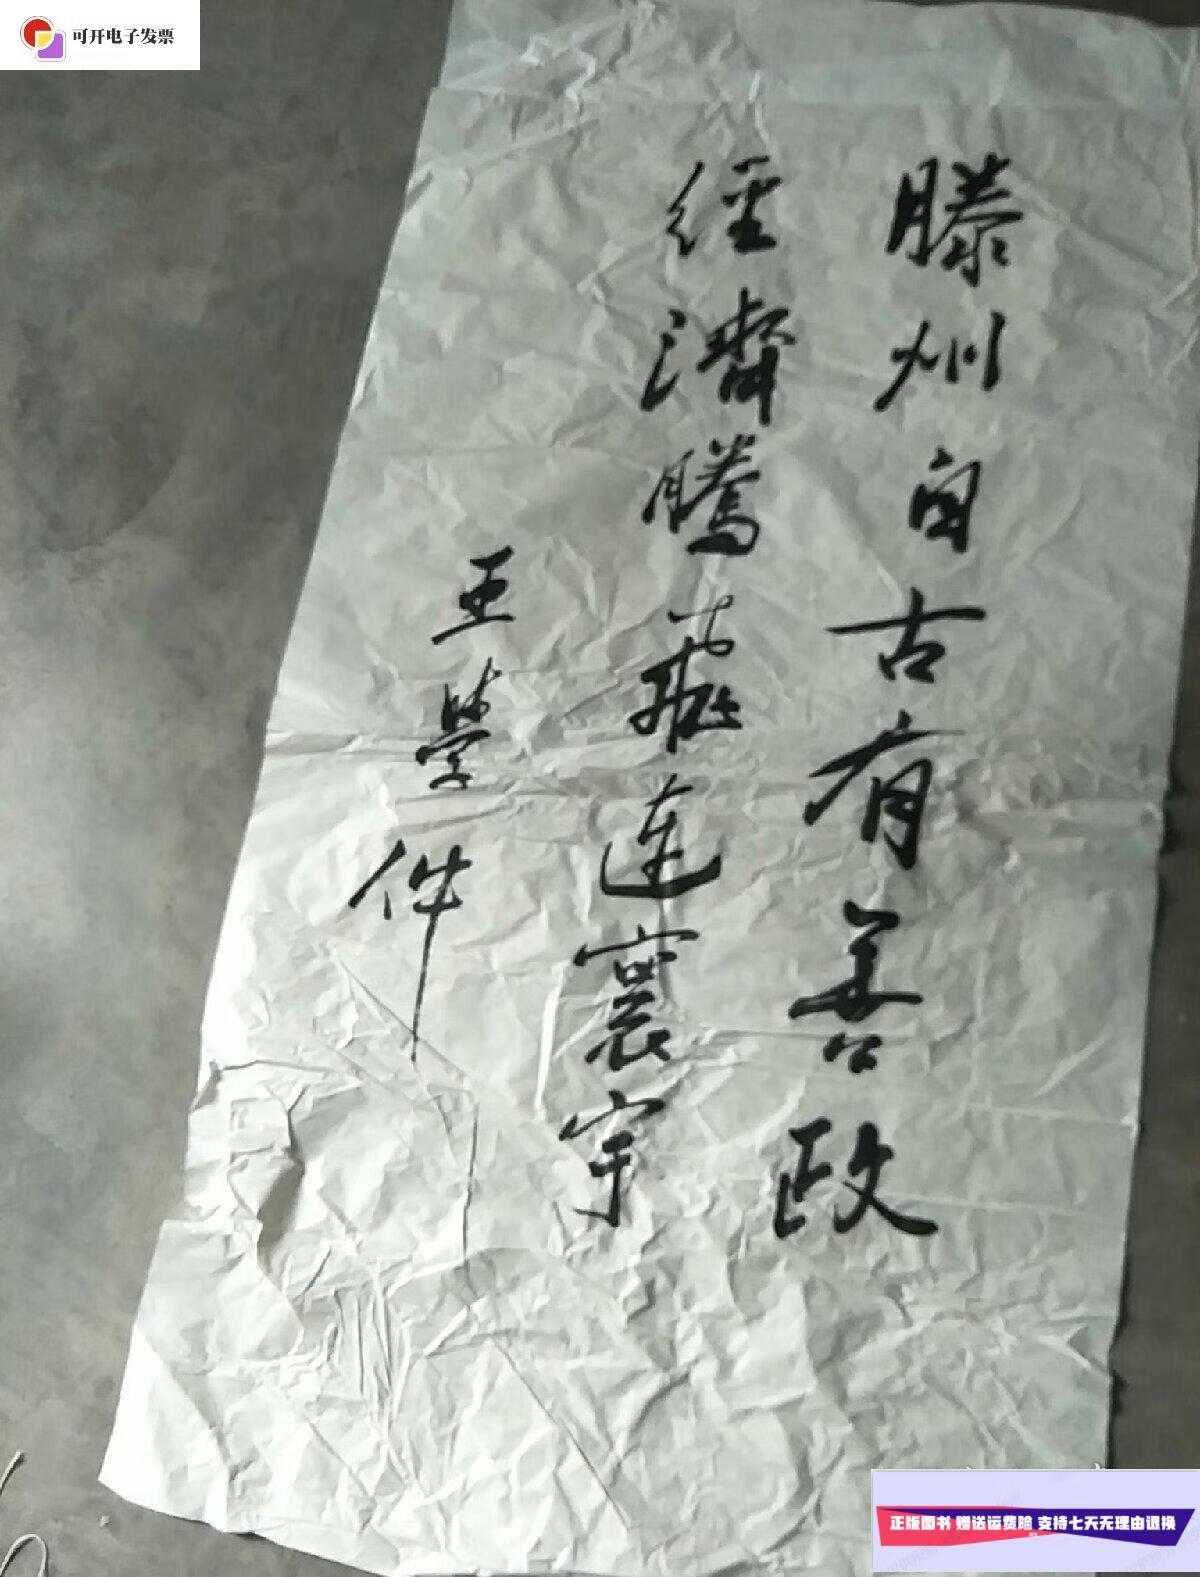 可开电子发票
滕州自古有善政
經濟騰飛連寰宇
王學仲
正版图书 赠送运费险 支持七天无理由退换